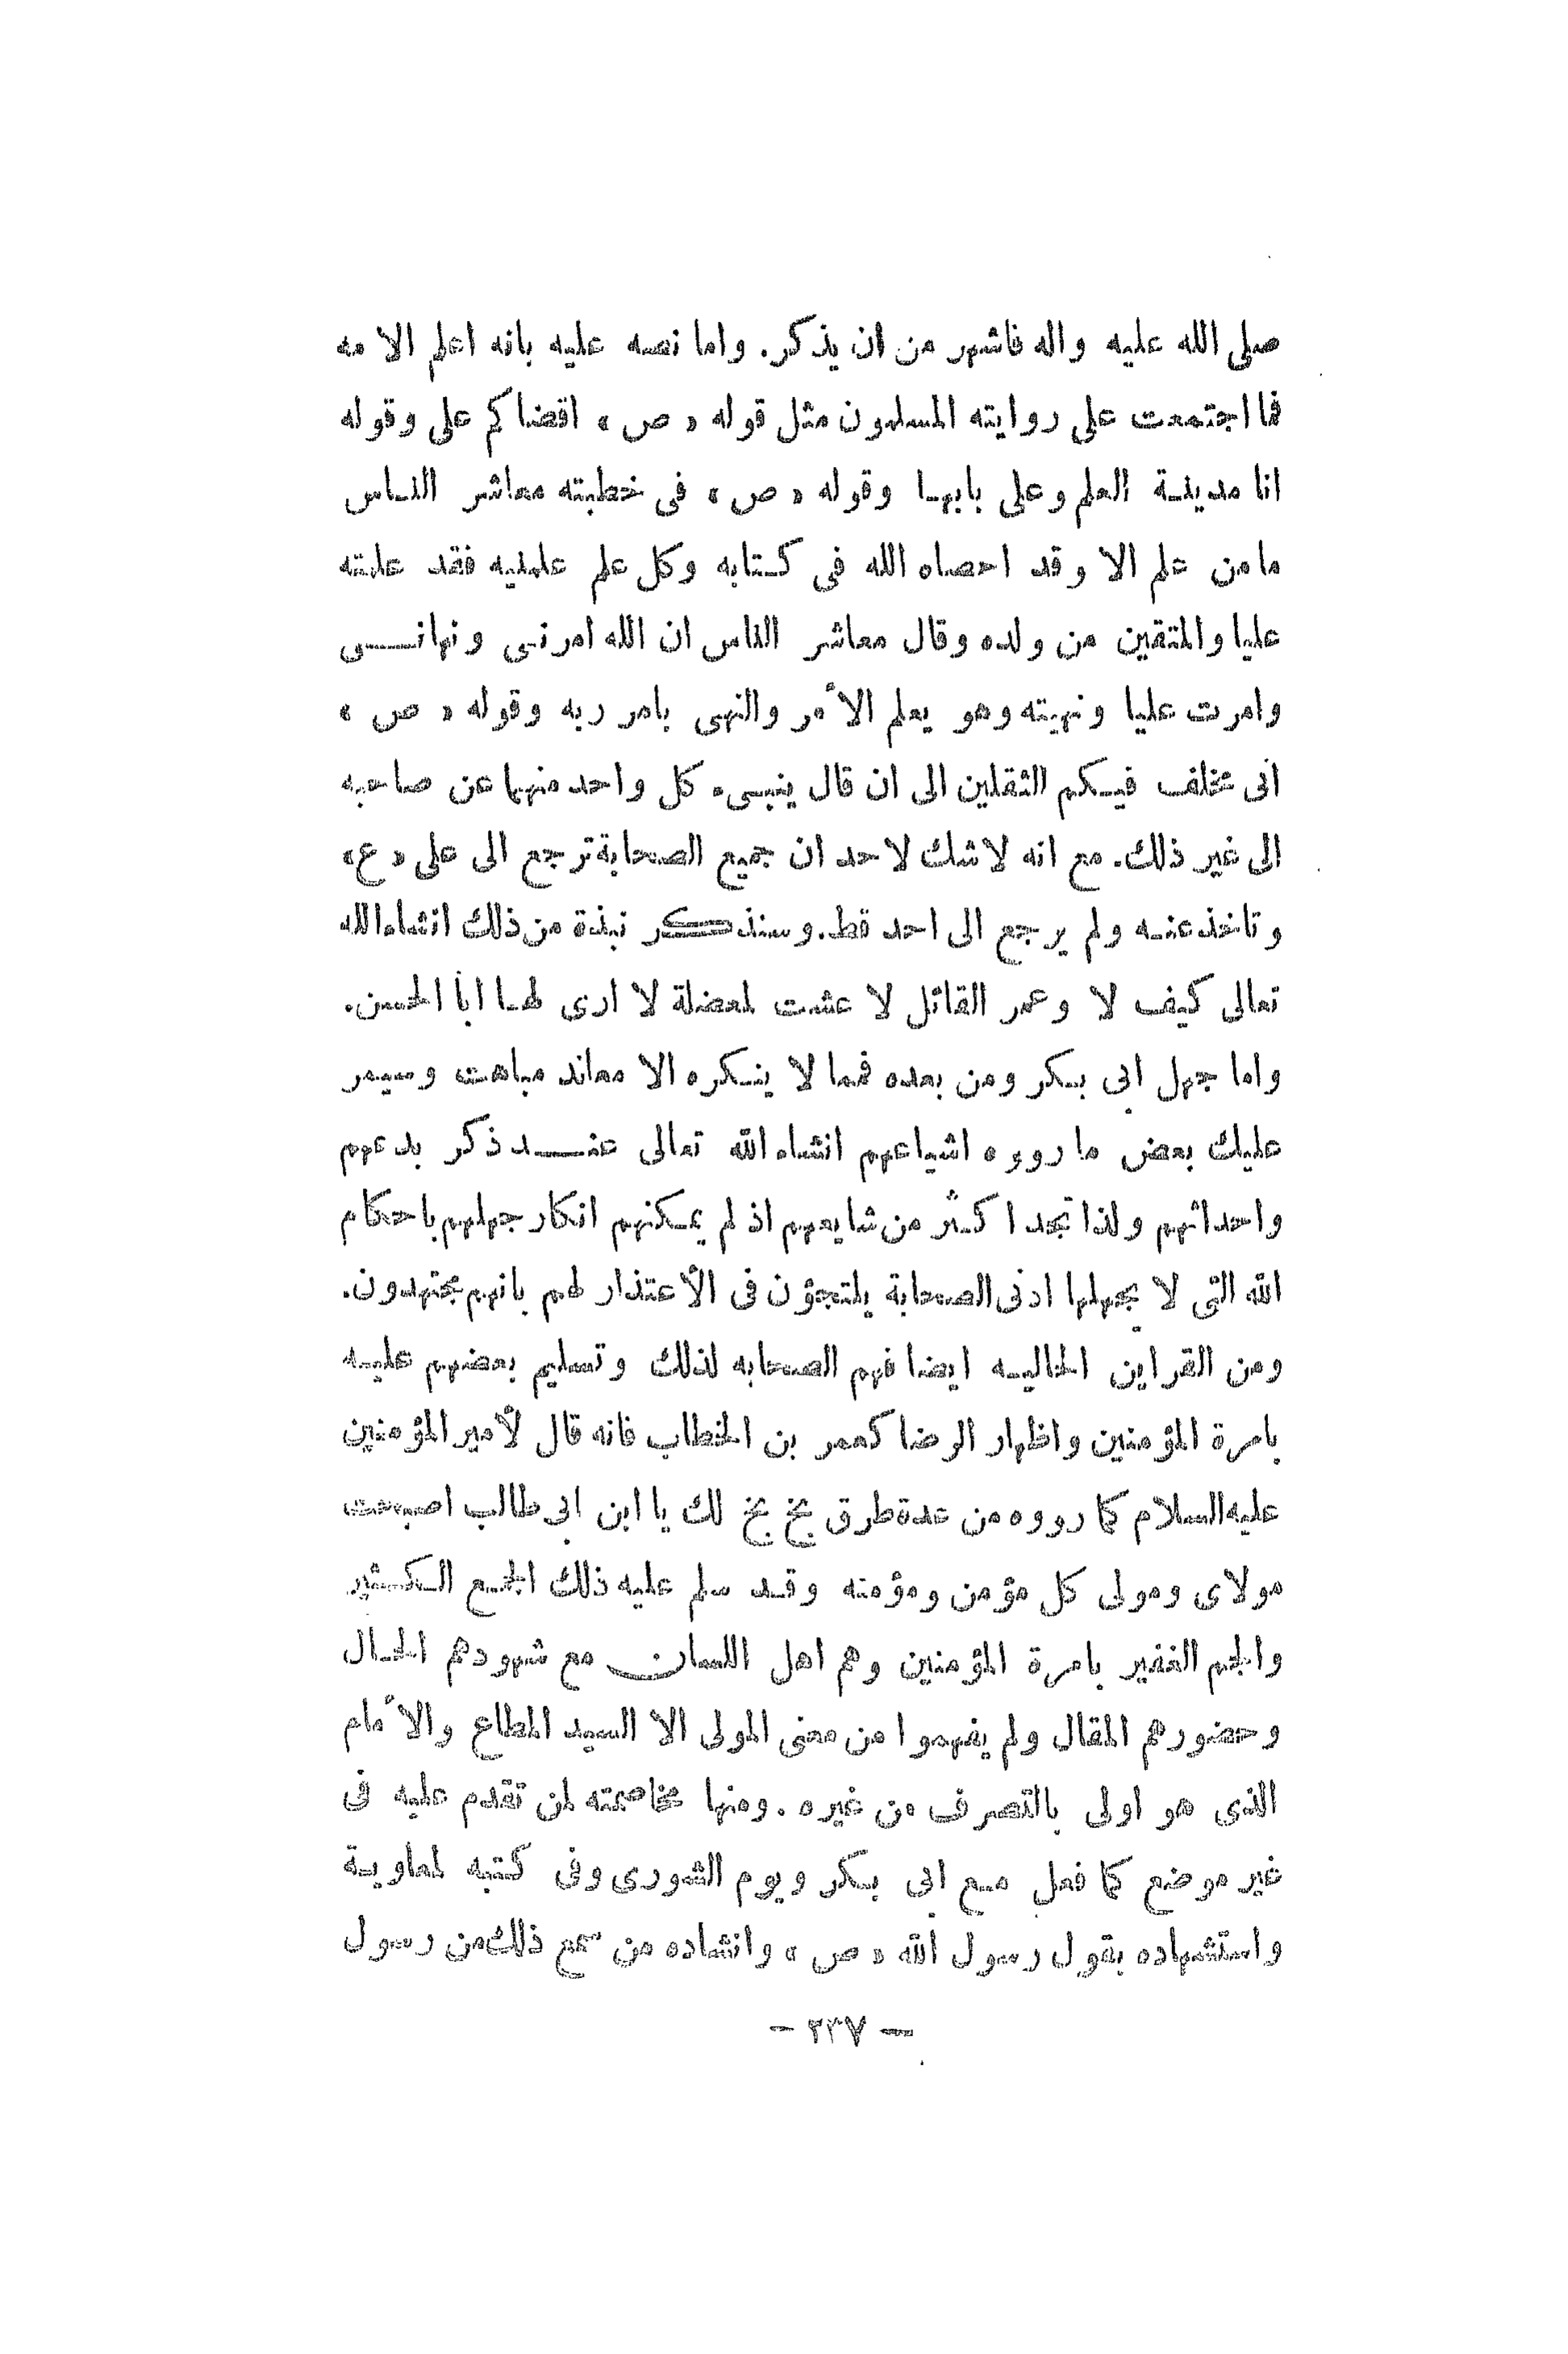 صلى الله عليه واله فاشهر من ان يذكر. واما نصه عليه بانه اعلم الامه
فما اجتمعت على روايته المسلمون مثل قوله « ص » اقضاكم على وقوله
انا مدينة العلم وعلى بابها وقوله « ص » فى خطبته معاشر الناس
ما من علم الا وقد احصاه الله فى كتابه وكل علم علمنيه فقد علمته
عليا والمتقين من ولده وقال معاشر الناس ان الله امرنى ونهانى
وامرت عليا ونهيته وهو يعلم الأمر والنهى بامر ربه وقوله « ص »
انى مخلف فيكم الثقلين الى ان قال ينبىء كل واحد منهما عن صاحبه
الى غير ذلك. مع انه لا شك لاحد ان جميع الصحابة ترجع الى على « ع »
وتاخذ عنه ولم يرجع الى احد قط. وسنذكر نبذة من ذلك انشاء الله
تعالى كيف لا وعمر القائل لا عشت لمعضلة لا ارى لها ابا الحسن.
واما جهل ابى بكر ومن بعده فمما لا ينكره الا معاند مباهت وسيمر
عليك بعض ما رووه اشياعهم انشاء الله تعالى عند ذكر بدعهم
واحداثهم ولذا تجد اكثر من شايعهم اذ لم يمكنهم انكار جهلهم باحكام
الله التى لا يجهلها ادنى الصحابة يلتجؤن فى الأعتذار لهم بانهم مجتهدون.
ومن القراين الحاليه ايضا فهم الصحابه لذلك وتسليم بعضهم عليه
بامرة المؤمنين واظهار الرضا كعمر بن الخطاب فانه قال لأمير المؤمنين
عليه السلام كما رووه من عدة طرق بخ بخ لك يا ابن ابى طالب اصبحت
مولاى ومولى كل مؤمن ومؤمنه وقد سلم عليه ذلك الجمع الكثير
والجم الغفير بامرة المؤمنين وهم اهل اللسان مع شهودهم الحال
وحضورهم المقال ولم يفهموا من معنى المولى الا السيد المطاع والأمام
الذى هو اولى بالتصرف من غيره. ومنها مخاصمته لمن تقدم عليه فى
غير موضع كما فعل مع ابى بكر ويوم الشورى وفى كتبه لمعاوية
واستشهاده بقول رسول الله « ص » وانشاده من سمع ذلك من رسول
— ٢٣٧ —